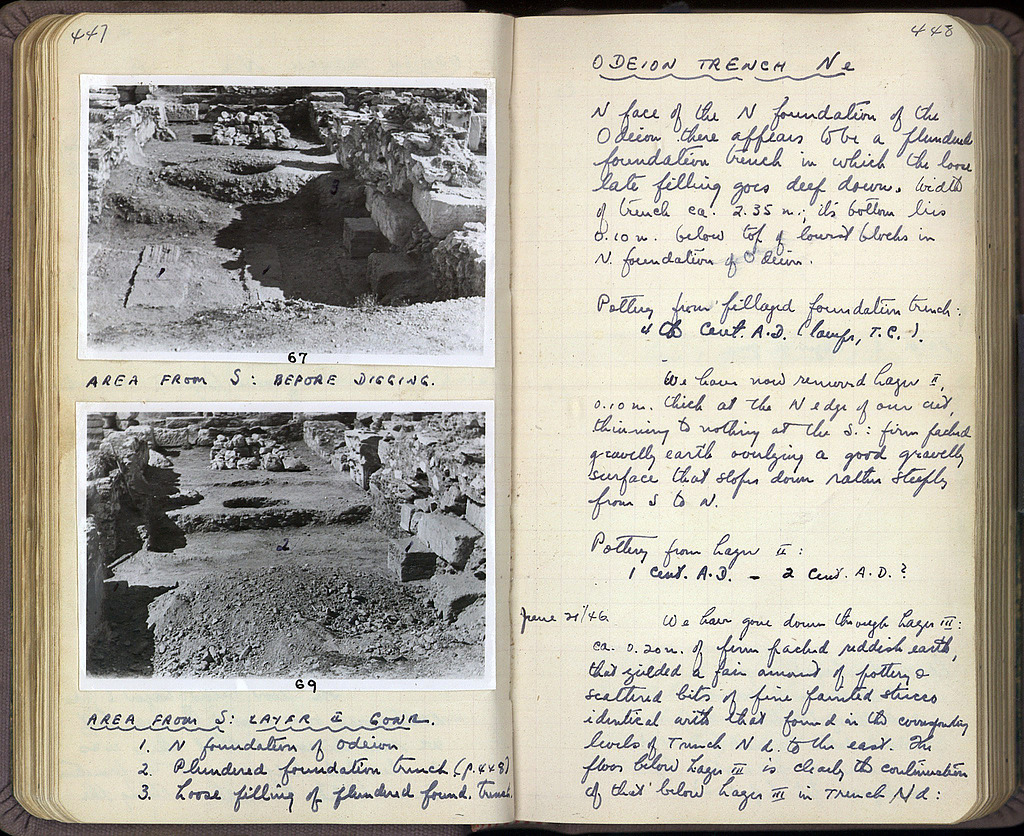 447
3
67
AREA FROM S: BEFORE DIGGING.
2
69
AREA FROM S: LAYER I GONE.
1. N foundation of Odeion
2. Plundered foundation trench (p. 448)
3. Loose filling of plundered found. trench.
448
ODEION TRENCH Ne
N face of the N foundation of the
Odeion there appears to be a plundered
foundation trench in which the loose
late filling goes deep down. Width
of trench ca. 2.35 m.; its bottom lies
0.10 m. below top of lowest blocks in
N. foundation of Odeion.
Pottery from pillaged foundation trench:
4th cent. A.D. (lamps, T.C.).
We have now removed Layer II,
0.10 m. thick at the N edge of our cut,
thinning to nothing at the S.: firm packed
gravelly earth overlying a good gravelly
surface that slopes down rather steeply
from S to N.
Pottery from Layer II:
1 cent. A.D. - 2 cent. A.D.?
June 21/46
We have gone down through Layer III:
ca. 0.20 m. of firm packed reddish earth,
that yielded a fair amount of pottery &
scattered bits of fine painted stucco
identical with that found in the corresponding
levels of Trench Nd. to the east. The
floor below Layer III is clearly the continuation
of that below Layer III in Trench Nd: